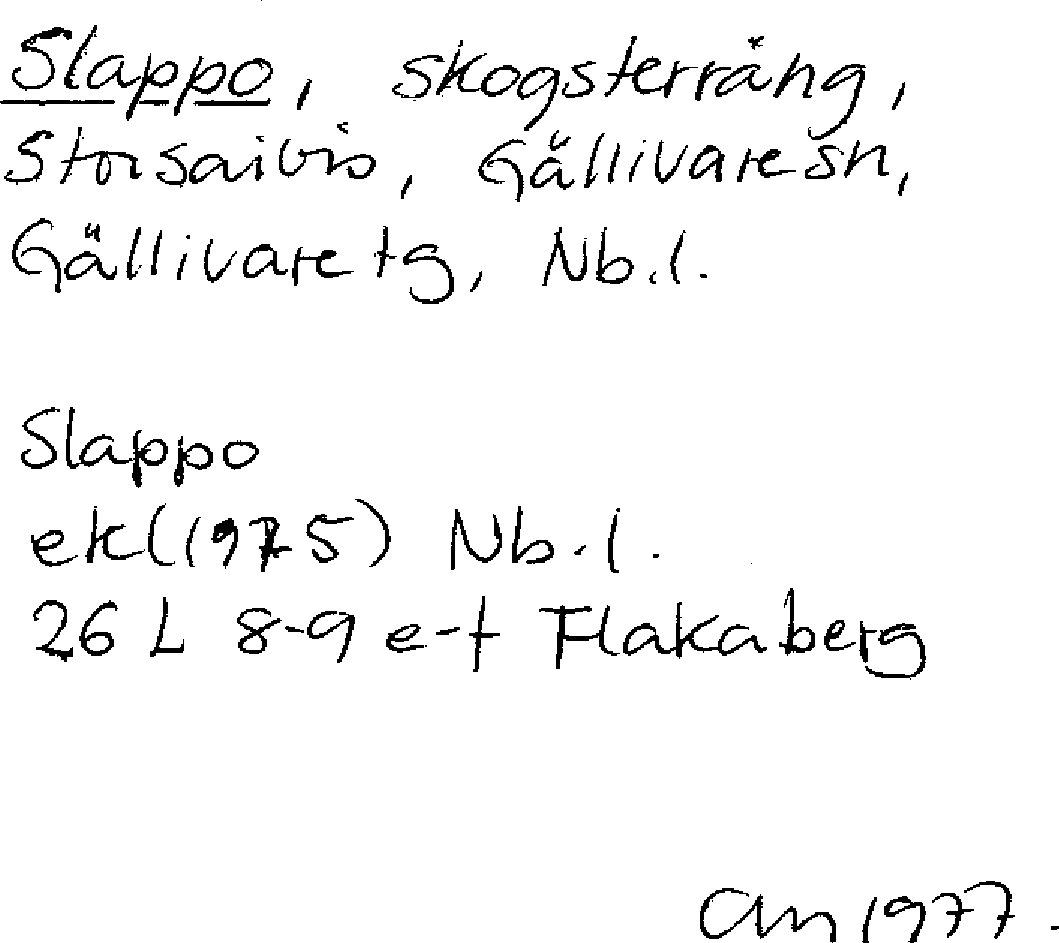 Slappo, skogsterräng,
Storsaivis, Gällivare sn,
Gällivare tg, Nb.l.
Slappo
ek (1975) Nb.l.
26 L 8-9 e-f Flakaberg
1977.